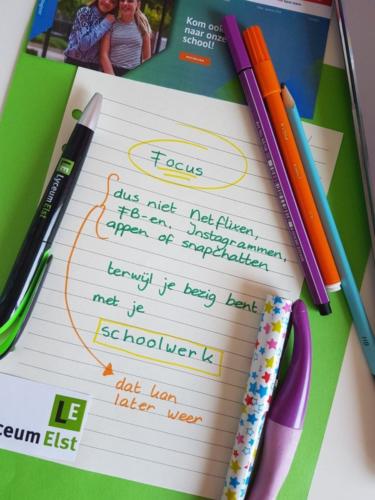 Kom ook
naar onze
school!
Focus
dus niet Netflixen,
FB-en, Instagrammen,
appen of snapchatten
terwijl je bezig bent
met je
schoolwerk
dat kan
later weer
LE Lyceum Elst
LE
ceum Elst
HB